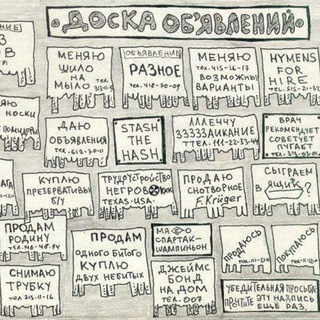 •ДОСКА ОБ'ЯВЛЕНИЙ•
МЕНЯЮ
ШИЛО
НА
МЫЛО
ОБ'ЯВЛЕНИЯ
РАЗНОЕ
МЕНЯЮ
ТЕЛ. 415-16-17
ВОЗМОЖНЫ
ВАРИАНТЫ
HYMENS
FOR
HIRE
НОСКИ
ДАЮ
ОБЪЯВЛЕНИЯ
STASH
THE
HASH
ЛЛЛЕЧЧУ
ЗЗЗЗЗАИКАНИЕ
ТТЕЛ. 111-22-33-44
ВРАЧ
РЕКОМЕНДУЕТ
СОВЕТУЕТ
ПУГАЕТ
КУПЛЮ
ПРЕЗЕРВАТИВЫ
Б/У
ТРУДОУСТРОЙСТВО
НЕГРОВ
TEXAS. USA.
ПРОДАЮ
СНОТВОРНОЕ
F. Krüger
СЫГРАЕМ
В
ЯЩИК?
ПРОДАМ
РОДИНУ
ПРОДАМ
ОДНОГО БИТОГО
КУПЛЮ
ДВУХ НЕБИТЫХ
СПАРТАК-
ШАМПИНЬОН
ПРОДАЮСЬ
ПОКУПАЮСЬ
СНИМАЮ
ТРУБКУ
ТЕЛ. 215-11-16
ДЖЕЙМС
БОНД
НА ДОМ
ТЕЛ. 007
УБЕДИТЕЛЬНАЯ ПРОСЬБА
ЭТУ НАДПИСЬ
ЕЩЕ РАЗ.